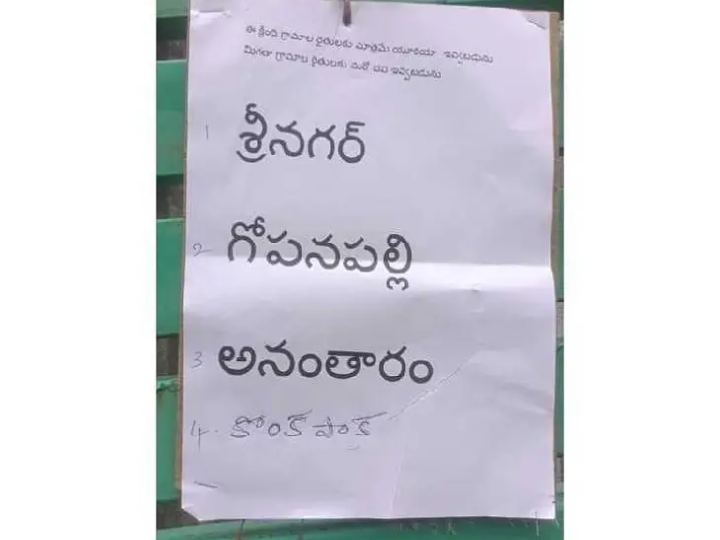 ఈ క్రింది గ్రామాల రైతులకు మాత్రమే యూరియా ఇవ్వబడును
మిగతా గ్రామాల రైతులకు ఇవ్వబడును
1 శ్రీనగర్
2 గోపనపల్లి
3 అనంతారం
4. కోంకపాక